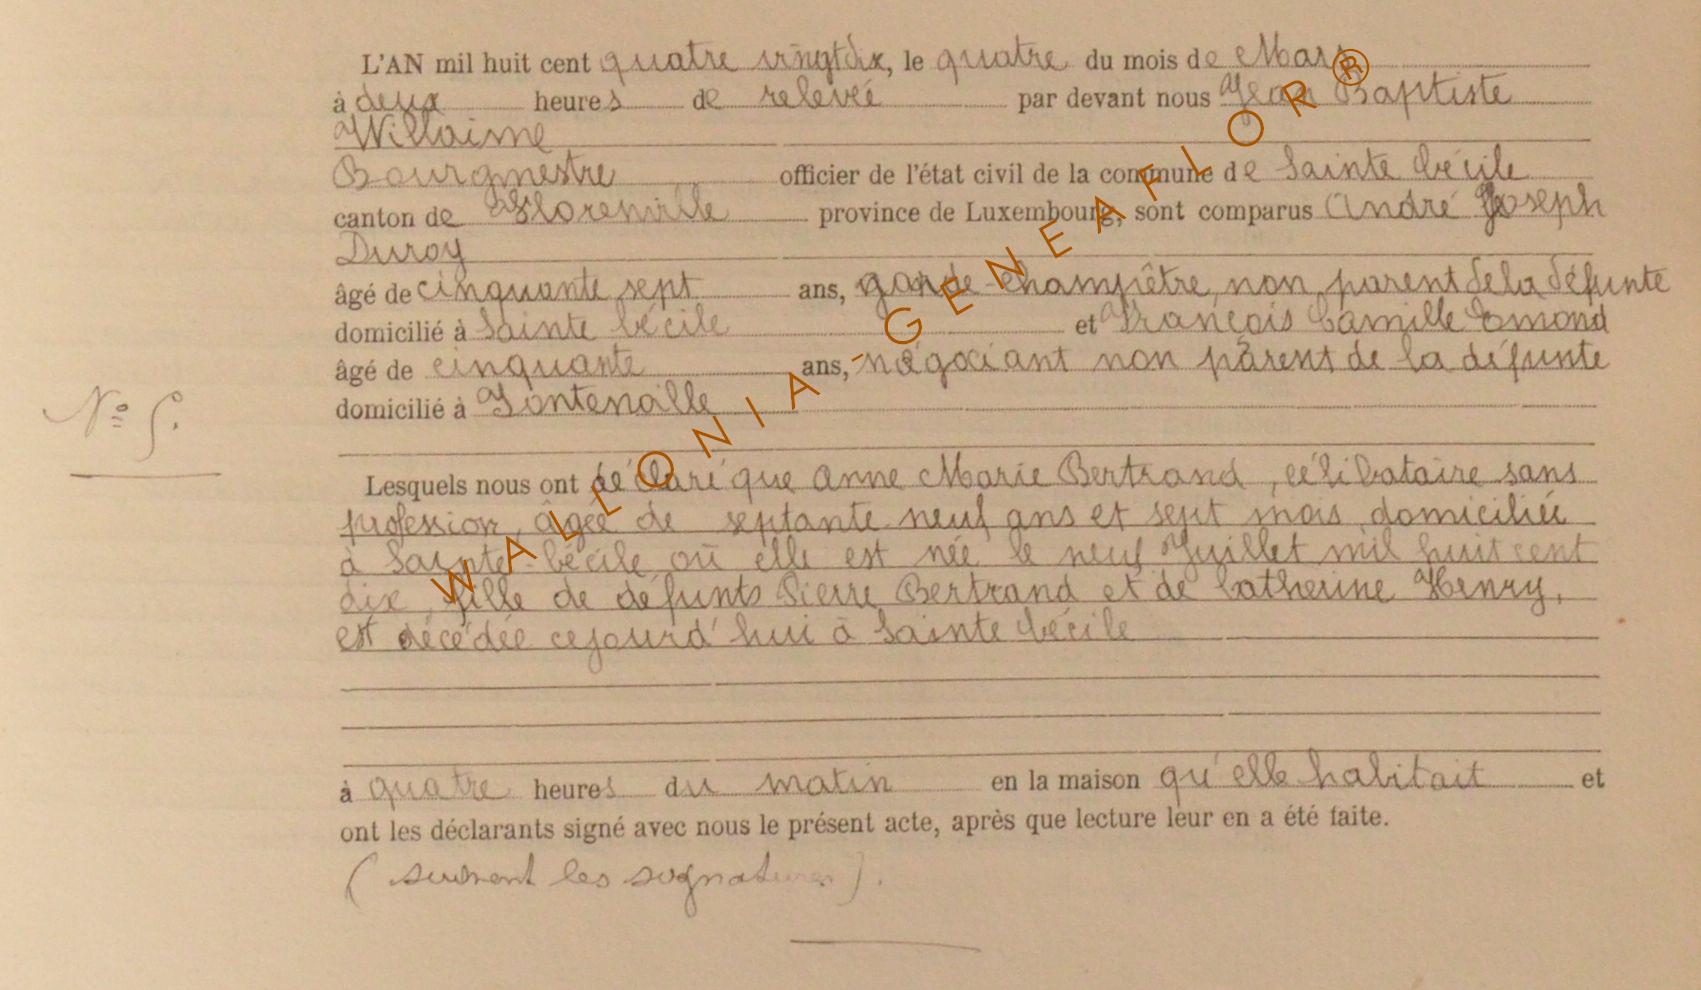 L'AN mil huit cent quatre vingt dix, le quatre du mois de Mars
à deux heures de relevée par devant nous Jean Baptiste
Willaime
Bourgmestre officier de l'état civil de la commune de Sainte Cécile
canton de Florenville province de Luxembourg, sont comparus André Joseph
Duroy
âgé de cinquante sept ans, garde-champêtre, non parent de la défunte
domicilié à Sainte Cécile et François Camille Emond
âgé de cinquante ans, négociant non parent de la défunte
domicilié à Fontenoille
N° 5.
Lesquels nous ont déclaré que Anne Marie Bertrand, célibataire sans
profession, âgée de septante neuf ans et sept mois, domiciliée
à Sainte-Cécile où elle est née le neuf Juillet mil huit cent
dix, fille de défunts Pierre Bertrand et de Catherine Henry,
est décédée cejourd'hui à Sainte Cécile
à quatre heures du matin en la maison qu'elle habitait et
ont les déclarants signé avec nous le présent acte, après que lecture leur en a été faite.
(suivent les signatures).
WALLONIA - GENEAFLOR®